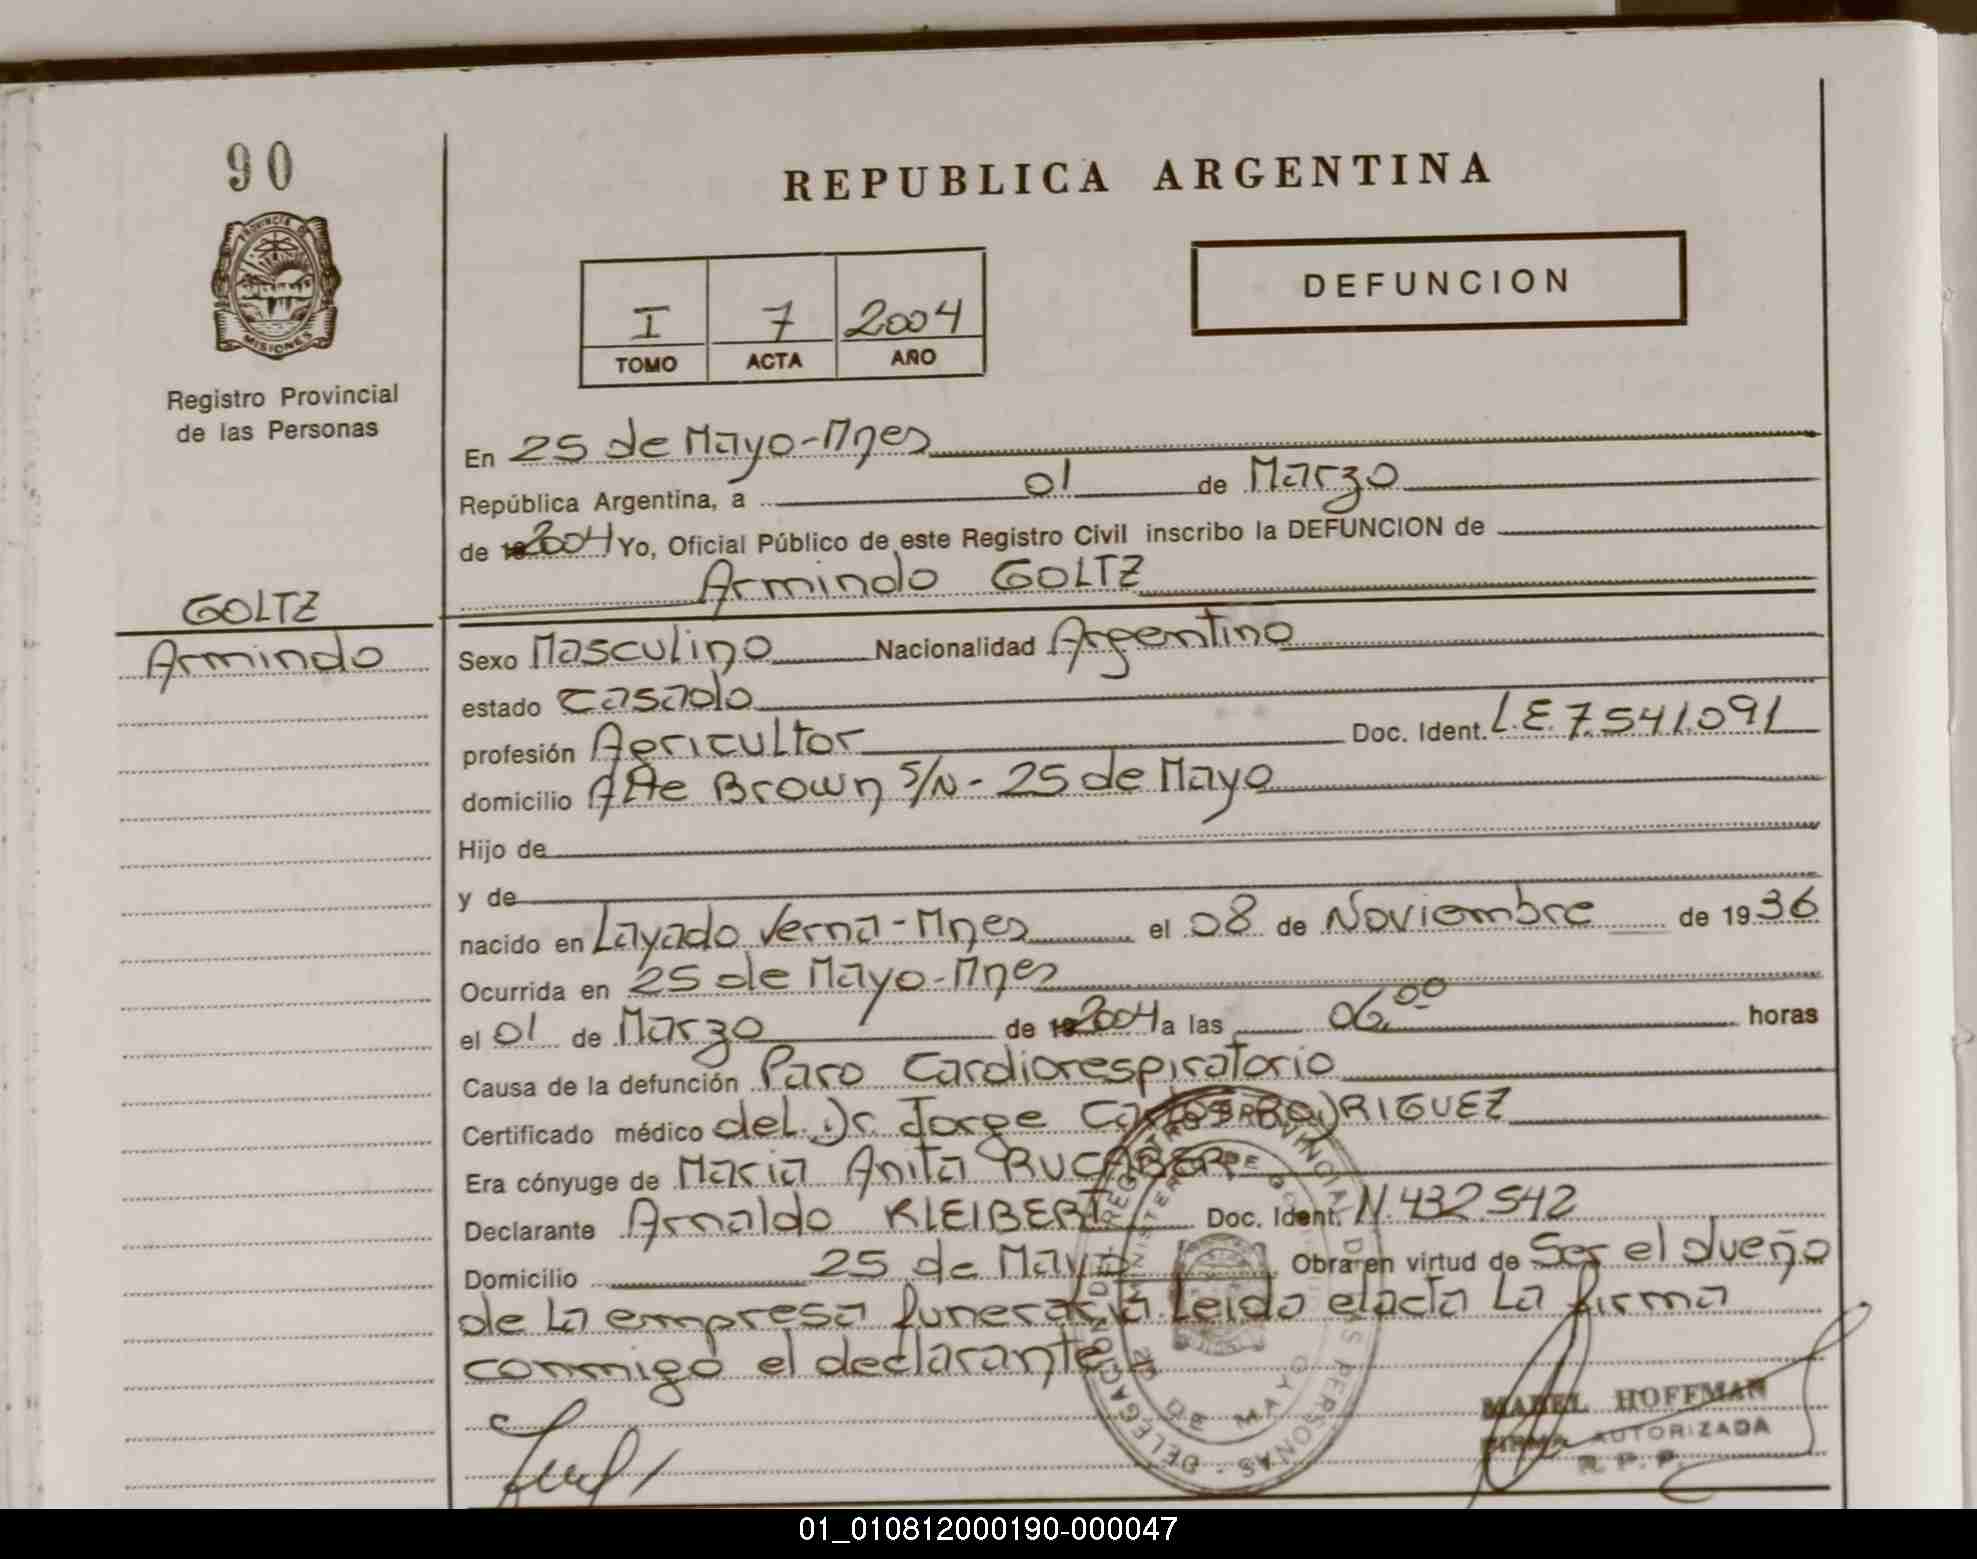 90
PROVINCIA DE
MISIONES
Registro Provincial
de las Personas
GOLTZ
Armindo
REPUBLICA ARGENTINA
I 7 2004
TOMO ACTA AÑO
DEFUNCION
En 25 de Mayo-Mnes
República Argentina, a 01 de Marzo
de 2004 Yo, Oficial Público de este Registro Civil inscribo la DEFUNCION de
Armindo GOLTZ
Sexo Masculino Nacionalidad Argentino
estado Casado
profesión Agricultor Doc. Ident. L.E.7.541.091
domicilio Alte Brown S/N - 25 de Mayo
Hijo de
y de
nacido en Layado Verna-Mnes el 08 de Noviembre de 1936
Ocurrida en 25 de Mayo-Mnes
el 01 de Marzo de 2004 a las 06.00 horas
Causa de la defunción Paro Cardiorespiratorio
Certificado médico del Dr. Jorge Carlos RODRIGUEZ
Era cónyuge de Maria Anita RUCABER
Declarante Arnaldo KLEIBERT Doc. Ident. N.432.542
Domicilio 25 de Mayo Obra en virtud de Ser el dueño
de la empresa funeraria Leida el acta La firma
conmigo el declarante
DELEGACION DEL REGISTRO PROVINCIAL DE LAS PERSONAS
25 DE MAYO
MABEL HOFFMAN
FIRMA AUTORIZADA
R. P. P.
01_010812000190-000047